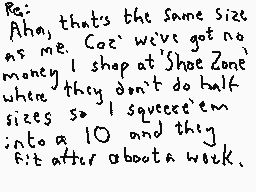 Re:
Aha, that's the same size
as me. Coz' we've got no
money I shop at 'Shoe Zone'
where they don't do half
sizes so I squeeze 'em
into a 10 and they
fit after about a week.